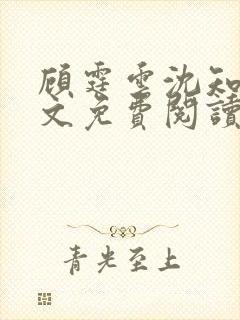 顾霆雲沈知
文免費閱讀
青光至上